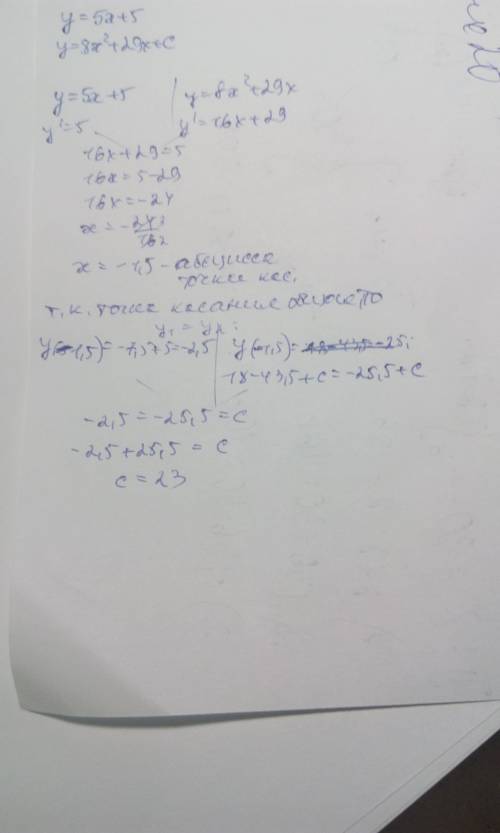 y=5x+5
y=8x²+29x+c
y=5x+5 | y=8x²+29x
y'=5 y'=16x+29
16x+29=5
16x=5-29
16x=-24
x=-24 3/16 2
x=-1,5 - абсцисса
точки кас.
т.к. точка касания общая, то
y₁=y₂:
y(-1,5)=-7,5+5=-2,5 | y(-1,5)=
18-43,5+c=-25,5+c
-2,5=-25,5=c
-2,5+25,5=c
c=23